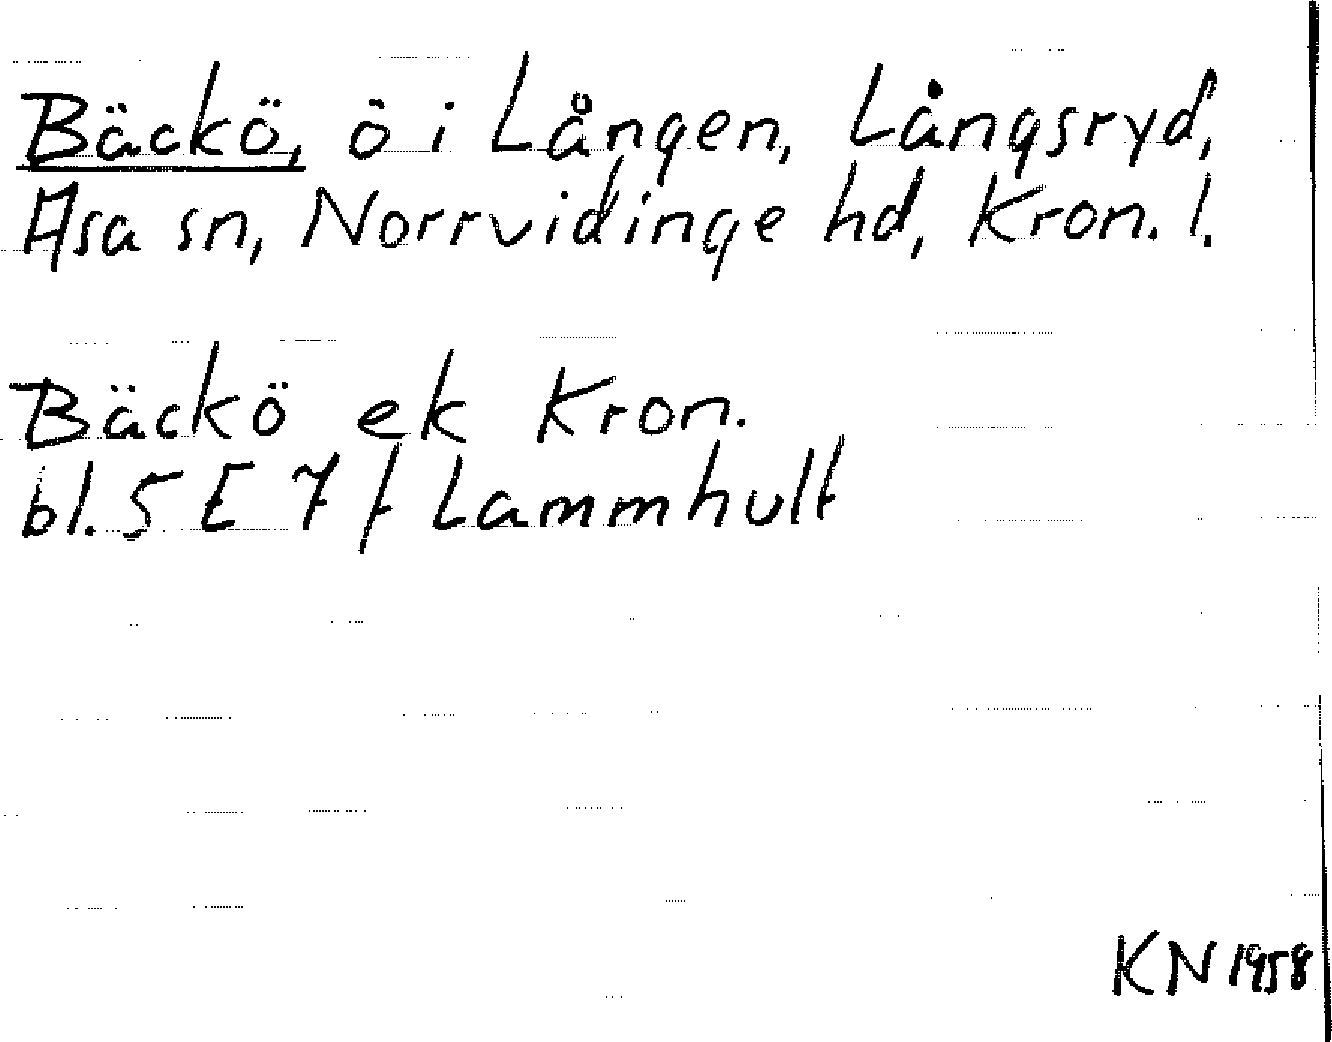 Bäckö, ö i Lången, Långsryd,
Asa sn, Norrvidinge hd, Kron. l.
Bäckö ek Kron.
bl. 5 E 7 f Lammhult
KN 1958